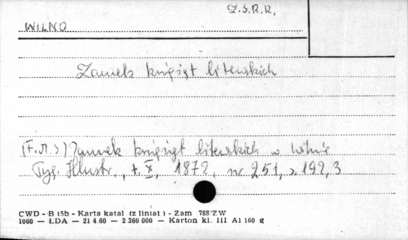 Z.S.R.R.
WILNO
Zamek książąt litewskich
(F.M.S) Zamek książąt litewskich w Wilnie
Tyg. Illustr., t. X, 1872, nr 251, s. 192,3
CWD - B 15b - Karta katal (z liniat) - Zam 788/ZW
1060 — ŁDA — 21 4.60 — 2 360 000 — Karton kl. III A1 160 g